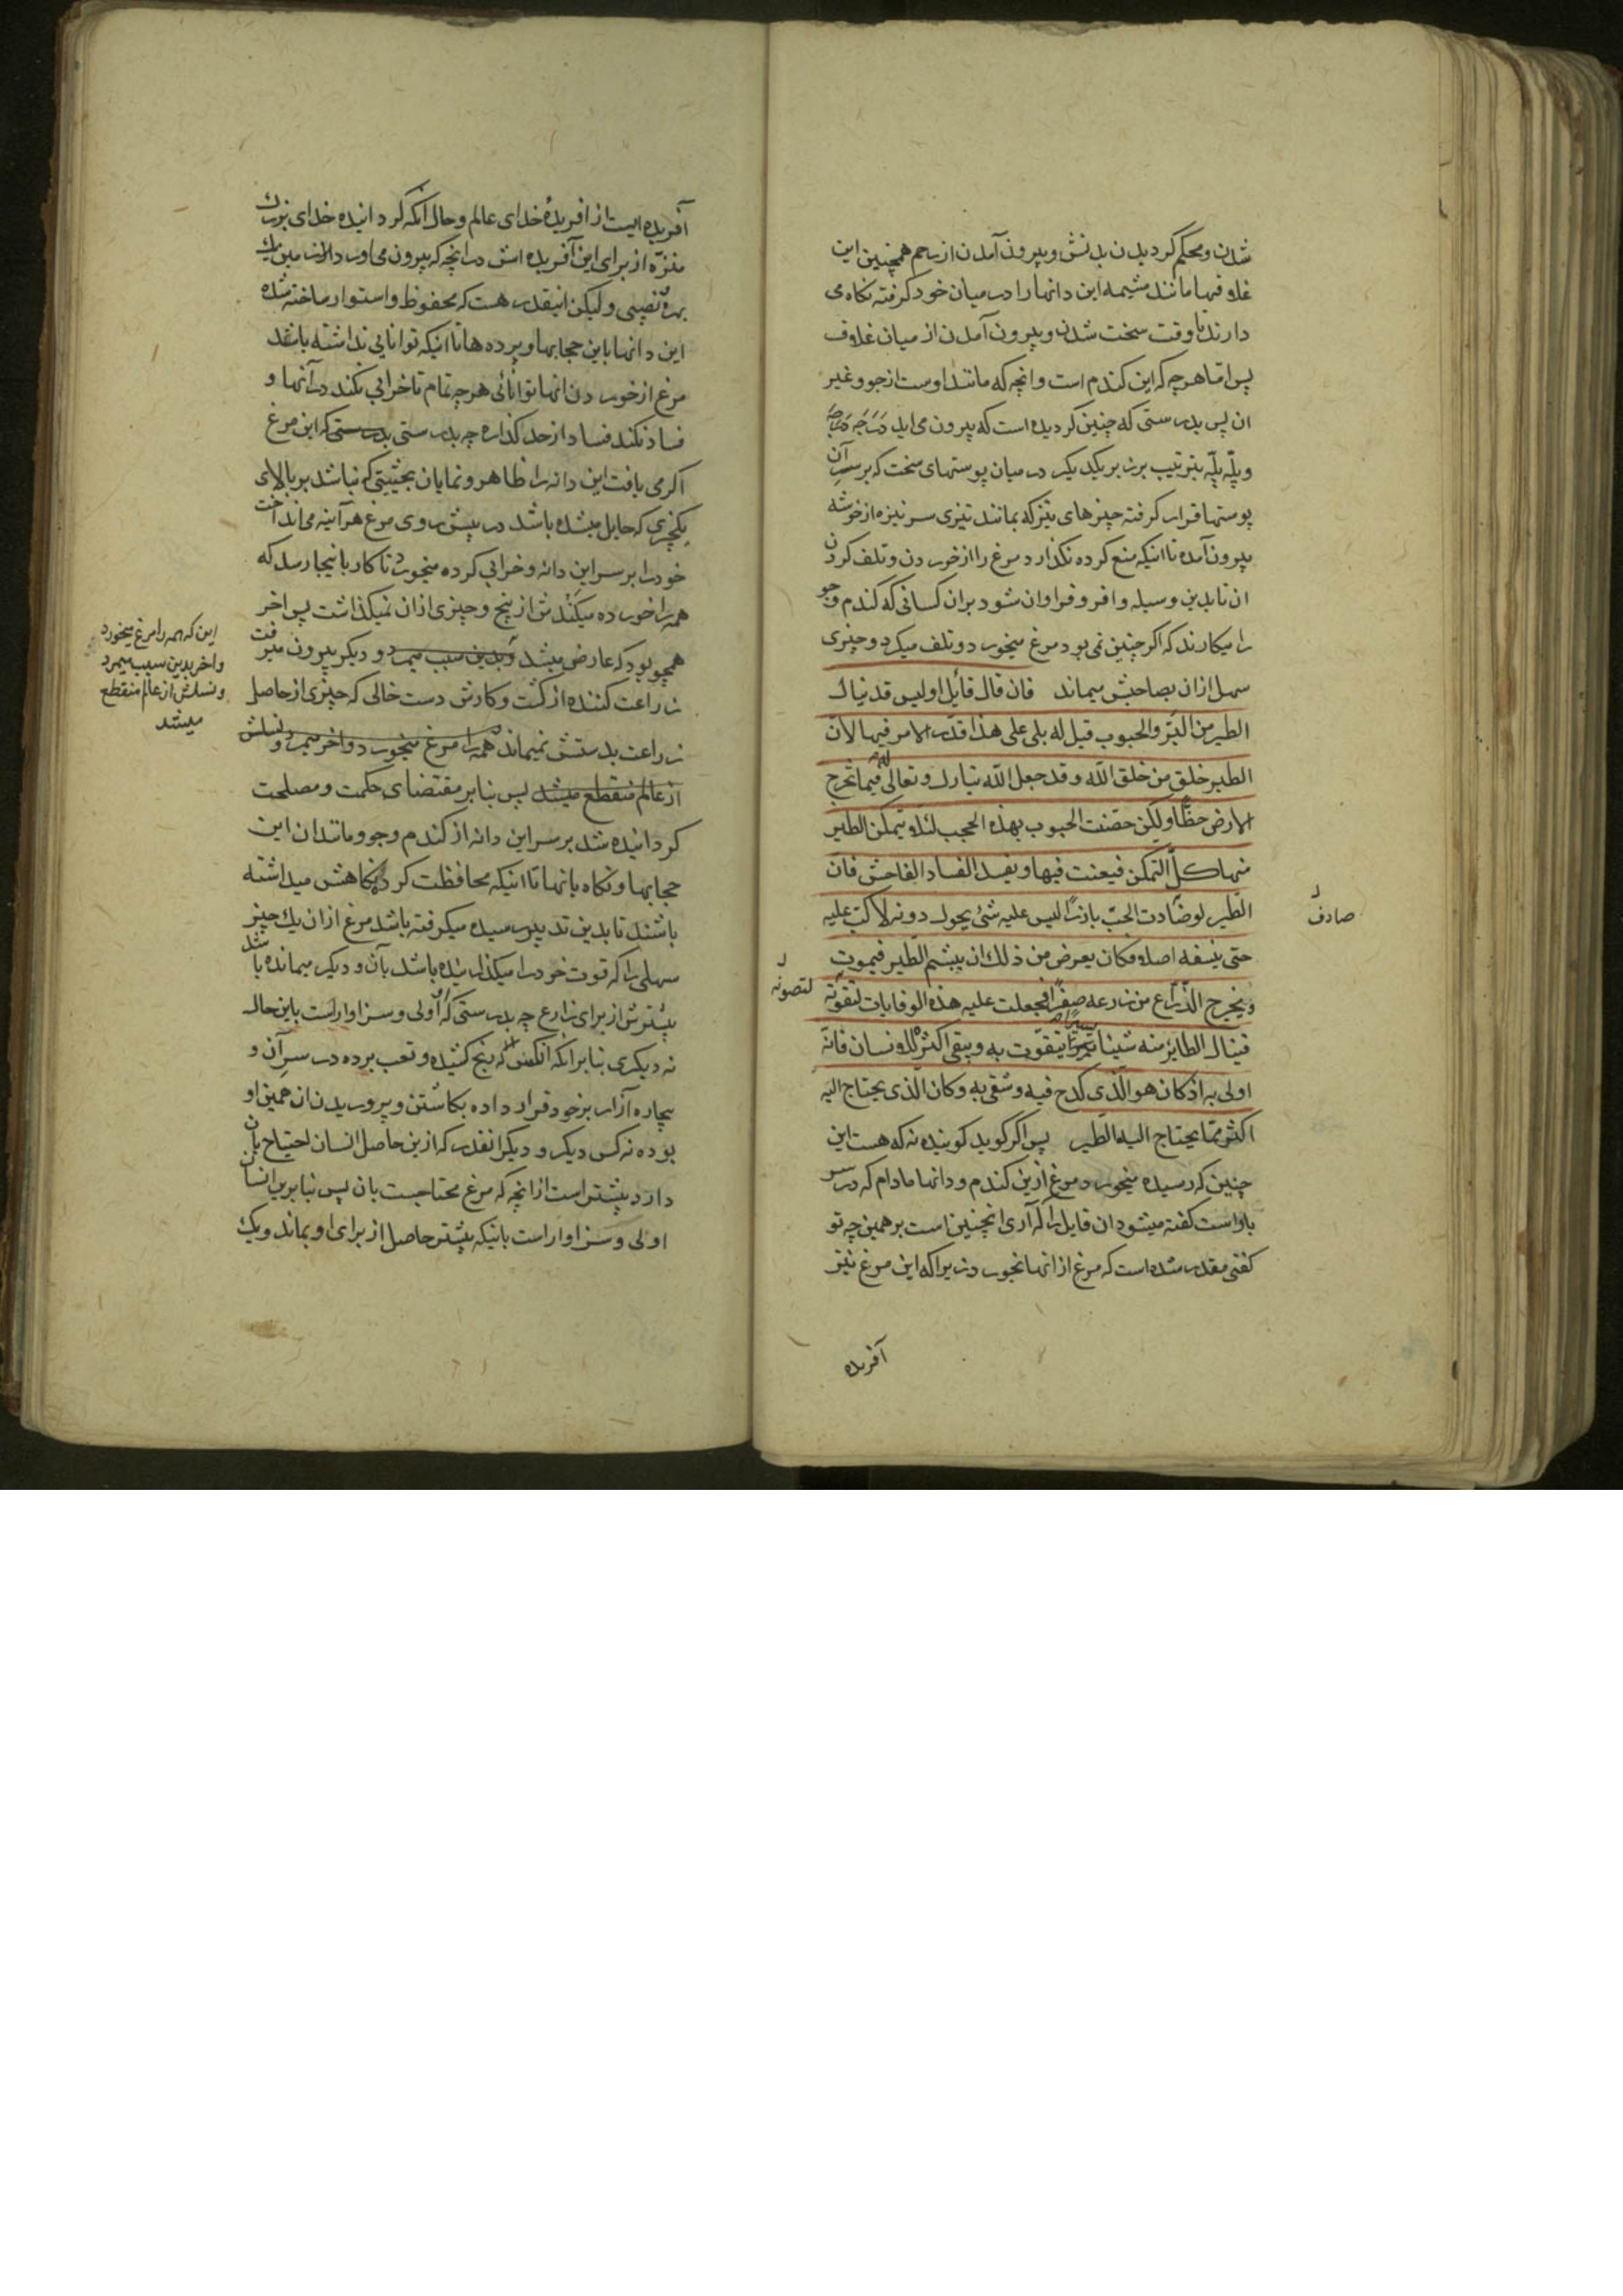 شدن و محکم کردیدن بدنش و بیرون آمدن از رحم همچنین این
غلافها مانند مشیمه این دانها را در میان خود کرفته نکاه می
دارند تا وقت سخت شدن و بیرون آمدن از میان غلاف
پس اما هر چه که این کندم است و انچه که مانند اوست از جو و غیر
ان پس بدرستی که چنین کردیده است که بیرون می اید
و پلّه پلّه بترتیب برز بر یکدیکر در میان پوستهای سخت که بر سر آن
پوستها قرار کرفته چیزهای تیز که بمانند تیزی سر نیزه از خوشه
بیرون آمده تا اینکه منع کرده نکذارد مرغ را از خوردن و تلف کردن
ان تا بدین وسیله وافر و فراوان شود بر ان کسانی که کندم و جو
را میکارند که اکر چنین نمی بود مرغ میخورد و تلف میکرد و چیزی
سهل از ان بصاحبش میماند فان قال قائل اولیس قد ینال
الطیر من البرّ والحبوب قیل له بلی علی هذا قدّر الامر فیها لانّ
الطیر خلق من خلق الله وقد جعل الله تبارك وتعالی له فیما تخرج
الارض حظّا ولکن حصّنت الحبوب بهذه الحجب لئلا یتمکّن الطیر
منها کلّ التمکّن فیعبث فیها ویفسد الفساد الفاحش فانّ
الطّیر لو صادت الحبّ بارزًا لیس علیه شئ یحول دونه لاکبّ علیه
صادف
حتی ینسفه اصلا فکان یعرض من ذلك ان یبشم الطیر فیموت
ویخرج الزّرّاع من زرعه صفرًا فجعلت علیه هذه الوقایات لتقوته
لتصونه
فینال الطایر منه شیئا یسیرا یتقوّت به ویبقی اکثره للانسان فانّه
اولی به اذ کان هو الّذی کدح فیه وشقی به وکان الّذی یحتاج الیه
اکثر ممّا یحتاج الیه الطیر پس اکر کوید کوینده نه که هست این
چنین که رسیده میخورد مرغ ازین کندم و دانها مادام که در سر
باواست کفته میشود ان قایل را که آری انچنین است بر همین چه تو
کفتی مقدر شده است که مرغ از انها بخورد زیرا که این مرغ نیز
آفریده
آفریده ایست از افریدهٔ خدای عالم و حال آنکه کردانیده خدای بزرك
منزّه از برای این آفریده اش در انچه که بیرون می اورد از زمین یك
بهره و نصیبی و لیکن اینقدر هست که محفوظ و استوار ساخته شده
این دانها باین حجابها و پرده ها تا اینکه توانایی نداشته باشد
مرغ از خوردن انها توانائی هر چه تمام تا خرابی بکند در آنها و
فساد نکند فساد از حد کذاره چه بدرستی بدرستی که این مرغ
اکر می یافت این دانه را ظاهر و نمایان بحیثیتی که نباشد بر بالای
یکچیزی که حایل میشده باشد در پیش روی مرغ هر آینه می انداخت
خود را بر سر این دانه و خرابی کرده میخورد تا کار بانیجا رسد که
همه را خورده میکندش از بیخ و چیزی از ان نمیکذاشت پس اخر
همچو بود که عارض میشد و بدین سبب میمرد و دیکر بیرون میرفت
این که همه را مرغ میخورد
و اخر بدین سبب میمرد
و نسلش از عالم منقطع
میشد
زراعت کننده از کشت و کارش دست خالی که چیزی از حاصل
زراعت بدستش نمیماند همه را مرغ میخورد و اخر میمرد و نسلش
از عالم منقطع میشد پس بنا بر مقتضای حکمت و مصلحت
کردانیده شد بر سر این دانه از کندم و جو و مانند ان این
حجابها و نکاه بانها تا اینکه محافظت کرده نکاهش میداشته
باشند تا بدین تدبیر رسیده میکرفته باشد مرغ از ان یك چیز
سهلی را که قوت خود را میکذرانیده باشد بآن و دیکر میمانده باشد
بیشترش از برای زارع چه بدرستی که او اولی و سزاوار است باین حال
نه دیکری بنا بر آنکه انکس که رنج کشیده و تعب برده در سر آن و
بیچاره آزار بر خود قرار داده بکاشتن و پروریدن ان همین او
بوده نه کس دیکر و دیکر انقدر که ازین حاصل انسان احتیاج بآن
دارد بیشتر است از انچه که مرغ محتاجست بان پس بنا برین انسان
اولی و سزاوار است بانیکه بیشتر حاصل از برای او بماند و یك